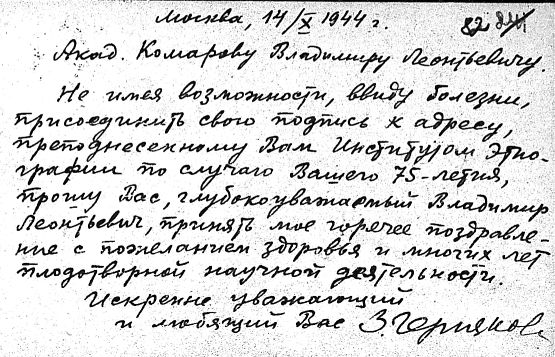 Москва, 14/X 1944 г. 82
Акад. Комарову Владимиру Леонтьевичу.
Не имея возможности, ввиду болезни,
присоединить свою подпись к адресу,
преподнесенному Вам Институтом Этно-
графии по случаю Вашего 75-летия,
прошу Вас, глубокоуважаемый Владимир
Леонтьевич, принять мое горячее поздравле-
ние с пожеланием здоровья и многих лет
плодотворной научной деятельности.
Искренне уважающий
и любящий Вас З. Черняков